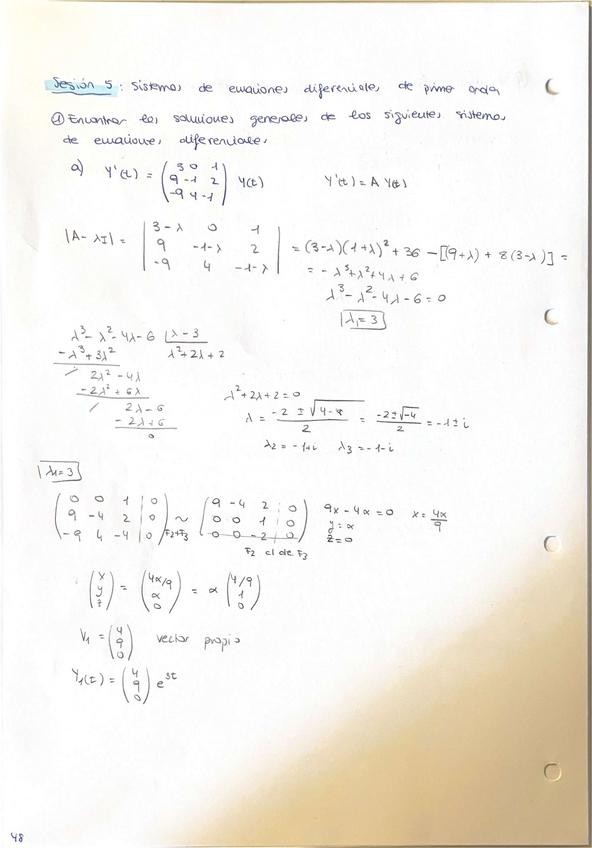 Sesión 5: Sistemas de ecuaciones diferenciales de primer orden
① Encontrar las soluciones generales de los siguientes sistemas
de ecuaciones diferenciales
a) Y'(t) = (3 0 1
9 -1 2
-9 4 -1) Y(t) Y'(t) = A Y(t)
|A - λI| = |3-λ 0 1
9 -1-λ 2
-9 4 -1-λ| = (3-λ)(1+λ)² + 36 - [(9+λ) + 8(3-λ)] =
= -λ³+λ²+4λ+6
λ³-λ²-4λ-6=0
λ₁=3
λ³-λ²-4λ-6 | λ-3
-λ³+3λ² λ²+2λ+2
/ 2λ²-4λ
-2λ²+6λ
/ 2λ-6
-2λ+6
0
λ²+2λ+2=0
λ = (-2 ± √4-8)/2 = (-2±√-4)/2 = -1±i
λ2=-1+i λ3=-1-i
λ1=3
(0 0 1 | 0
9 -4 2 | 0
-9 4 -4 | 0) F2+F3 ~ (9 -4 2 | 0
0 0 1 | 0
0 0 -2 | 0) 9x-4α=0 x=4α/9
y=α
z=0
F2 cl de F3
(x
y
z) = (4α/9
α
0) = α (4/9
1
0)
V₁ = (4
9
0) vector propio
Y₁(t) = (4
9
0) e^3t
48